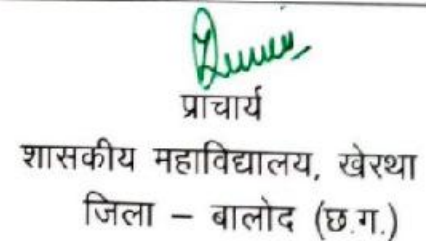 प्राचार्य
शासकीय महाविद्यालय, खेरथा
जिला – बालोद (छ.ग.)